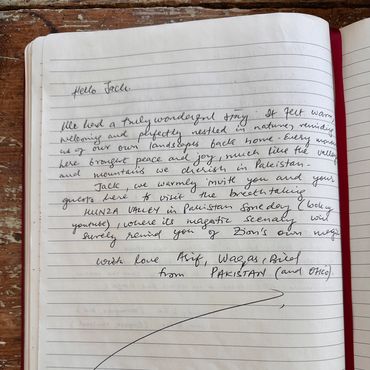 Hello Jack.
We had a truly wonderful stay. It felt warm
welcoming and perfectly nestled in nature, reminding
us of our own landscapes back home. Every moment
here brought peace and joy, much like the valleys
and mountains we cherish in Pakistan.
Jack, we warmly invite you and your
guests here to visit the breathtaking
HUNZA VALLEY in Pakistan someday (look up
youtube), where its magestic scenary will
surely remind you of Zion's own magic
with love Asif, Waqas,
from PAKISTAN (and OHIO)